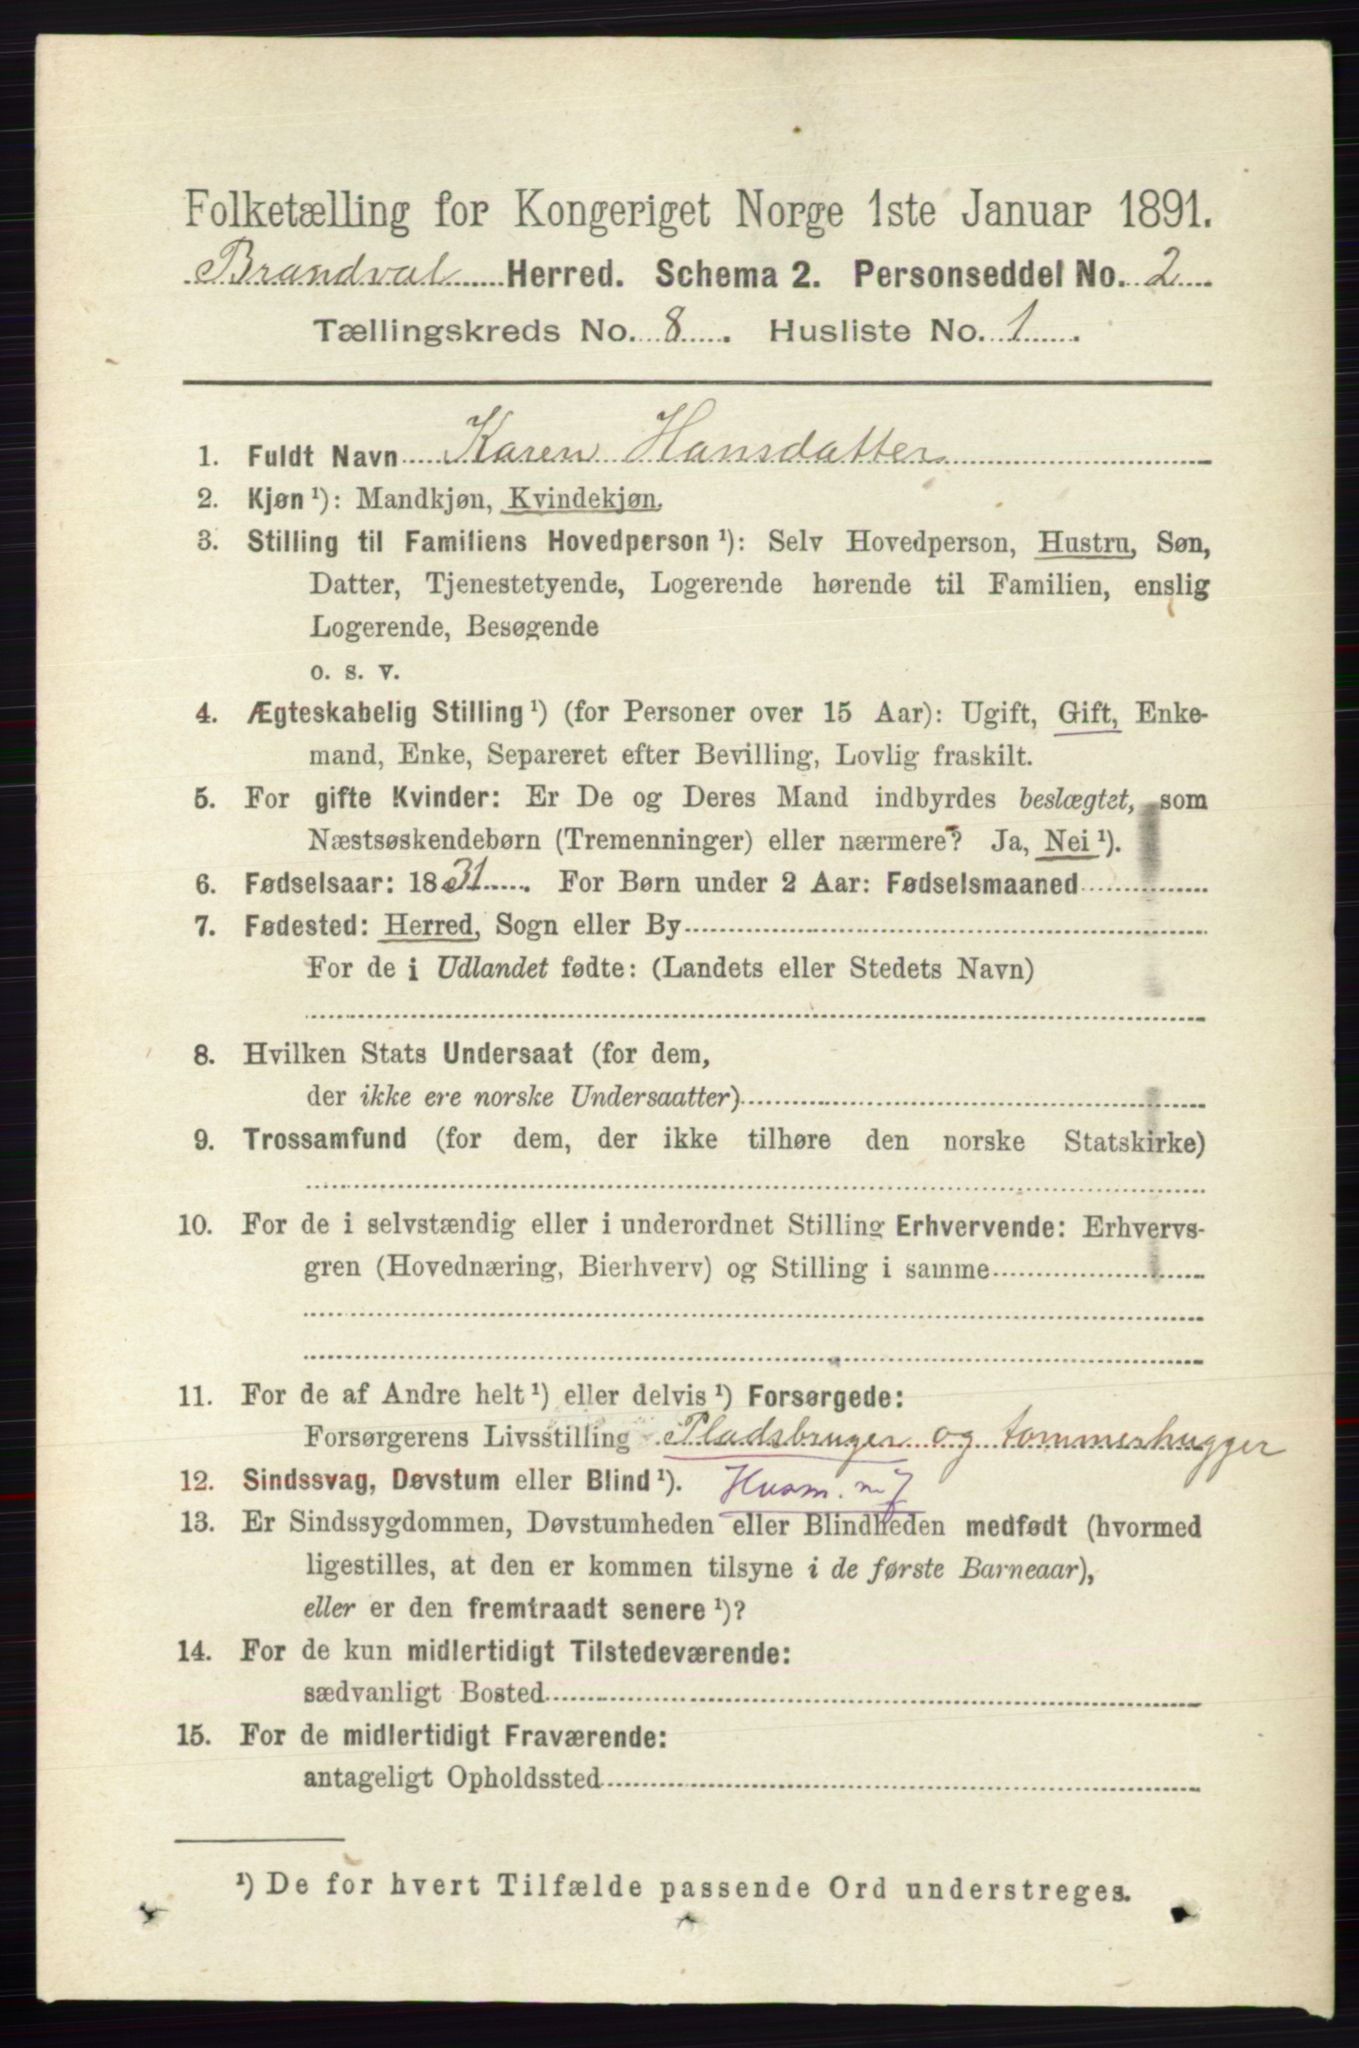 Folketælling for Kongeriget Norge 1ste Januar 1891.
Brandval Herred. Schema 2. Personseddel No. 2
Tællingskreds No. 8. Husliste No. 1.
1. Fuldt Navn Karen Hansdatter
2. Kjøn ¹): Mandkjøn, Kvindekjøn.
3. Stilling til Familiens Hovedperson ¹): Selv Hovedperson, Hustru, Søn,
Datter, Tjenestetyende, Logerende hørende til Familien, enslig
Logerende, Besøgende
o. s. v.
4. Ægteskabelig Stilling ¹) (for Personer over 15 Aar): Ugift, Gift, Enke-
mand, Enke, Separeret efter Bevilling, Lovlig fraskilt.
5. For gifte Kvinder: Er De og Deres Mand indbyrdes beslægtet, som
Næstsøskendebørn (Tremenninger) eller nærmere? Ja, Nei ¹).
6. Fødselsaar: 1831. For Børn under 2 Aar: Fødselsmaaned
7. Fødested: Herred, Sogn eller By
For de i Udlandet fødte: (Landets eller Stedets Navn)
8. Hvilken Stats Undersaat (for dem,
der ikke ere norske Undersaatter)
9. Trossamfund (for dem, der ikke tilhøre den norske Statskirke)
10. For de i selvstændig eller i underordnet Stilling Erhvervende: Erhvervs-
gren (Hovednæring, Bierhverv) og Stilling i samme
11. For de af Andre helt ¹) eller delvis ¹) Forsørgede:
Forsørgerens Livsstilling Pladsbruger og tømmerhugger
12. Sindssvag, Døvstum eller Blind ¹). Husm. m J
13. Er Sindssygdommen, Døvstumheden eller Blindheden medfødt (hvormed
ligestilles, at den er kommen tilsyne i de første Barneaar),
eller er den fremtraadt senere ¹)?
14. For de kun midlertidigt Tilstedeværende:
sædvanligt Bosted
15. For de midlertidigt Fraværende:
antageligt Opholdssted
¹) De for hvert Tilfælde passende Ord understreges.